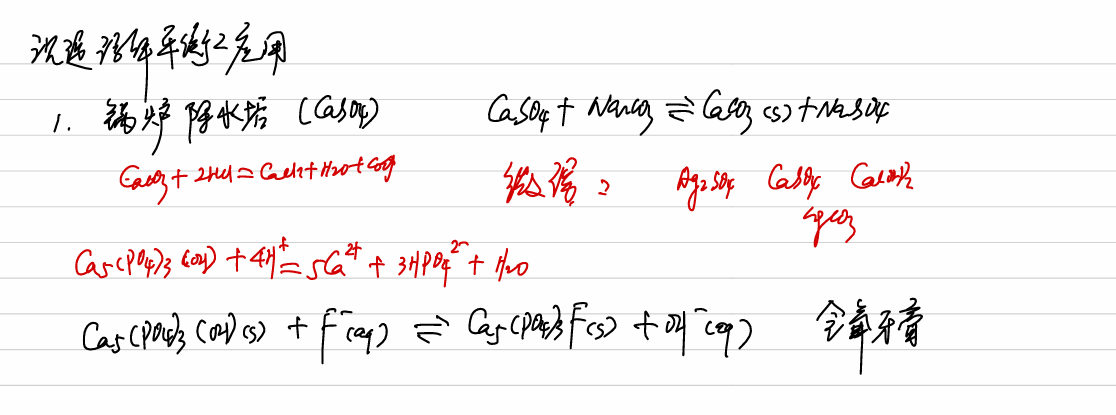 沉淀溶解平衡之应用
1. 锅炉除水垢 (CaSO4) CaSO4 + Na2CO3 ⇌ CaCO3 (s) + Na2SO4
CaCO3 + 2HCl = CaCl2 + H2O + CO2 微溶: Ag2SO4 CaSO4 Ca(OH)2
MgCO3
Ca5(PO4)3(OH) + 4H+ = 5Ca2+ + 3HPO42- + H2O
Ca5(PO4)3(OH)(s) + F-(aq) ⇌ Ca5(PO4)3F(s) + OH-(aq) 含氟牙膏